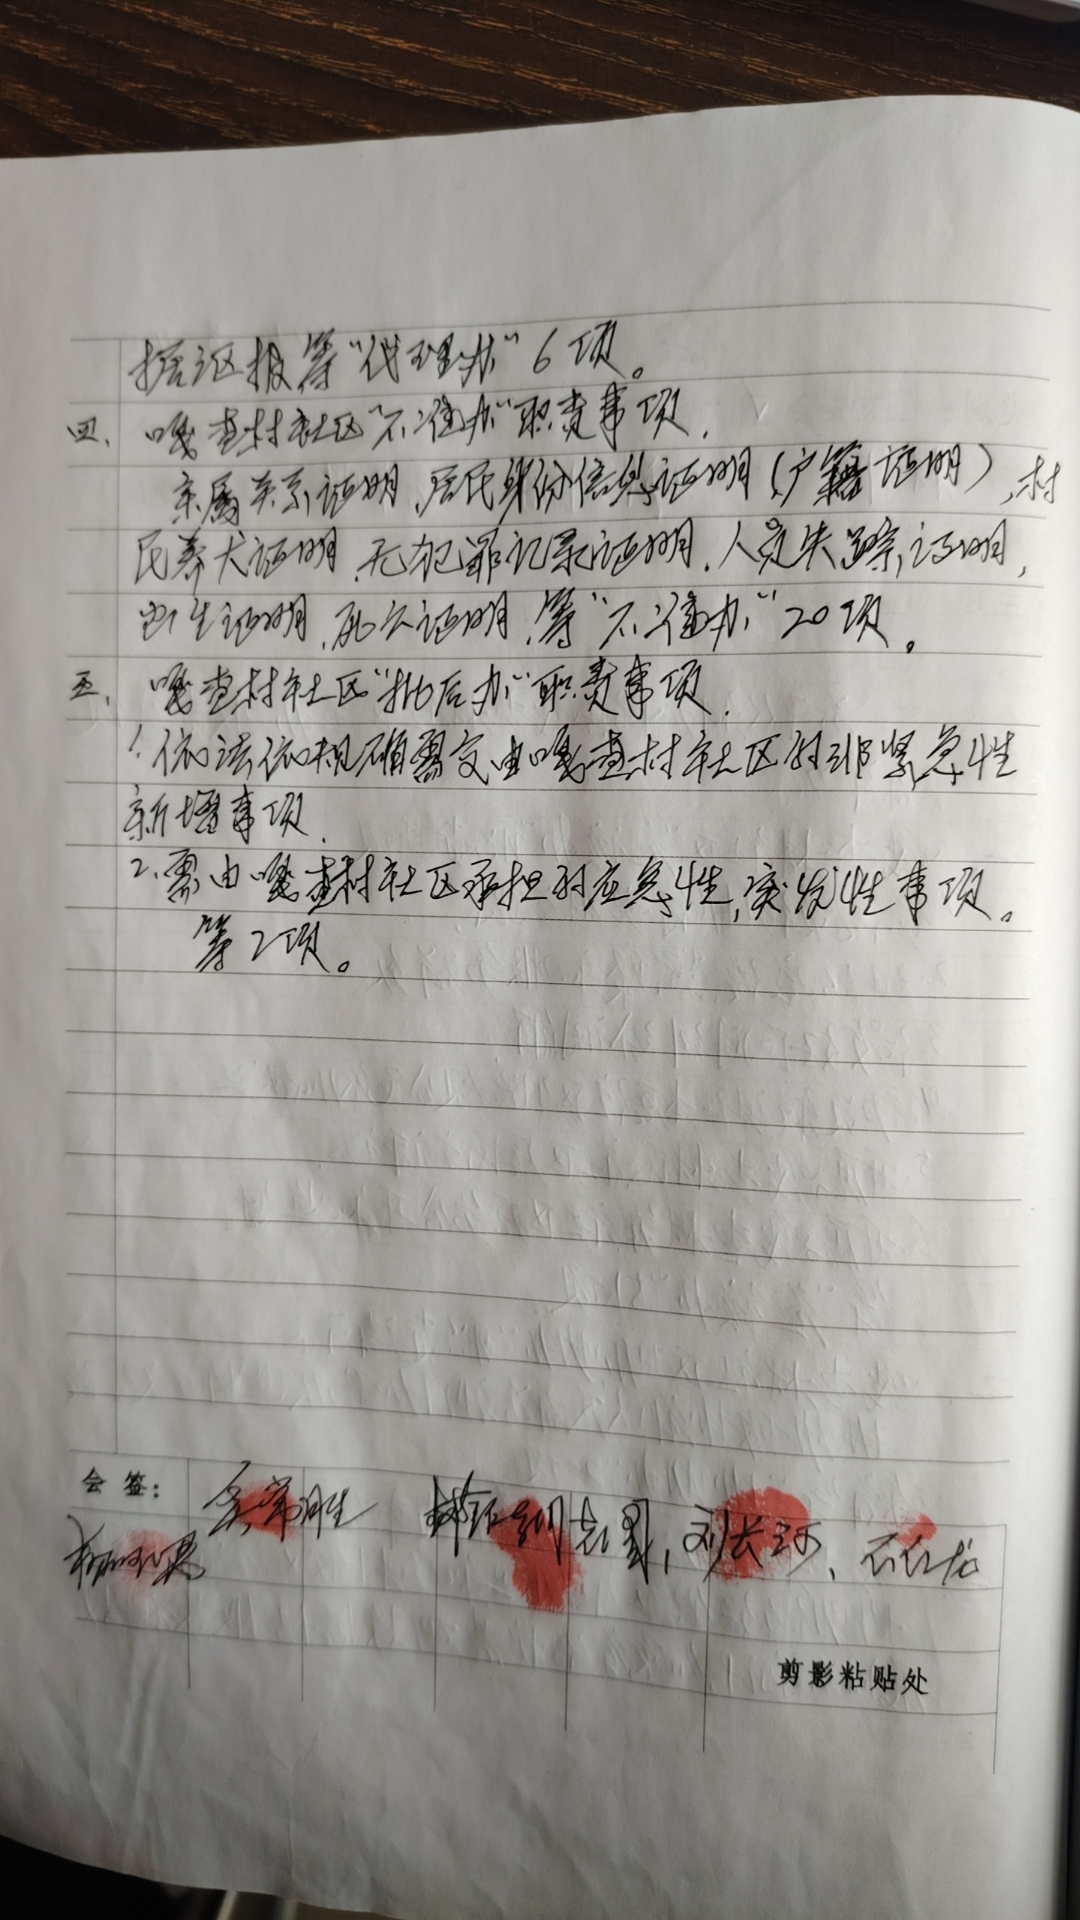 报等“代理办”6项。
四、嘎查村社区“不准办”职责事项.
亲属关系证明、居民身份信息证明(户籍证明)、村
民养犬证明、无犯罪记录证明、人员失踪证明、
出生证明、死亡证明、等“不准办”20项。
五、嘎查村社区“批后办”职责事项.
1.依法依规确需交由嘎查村社区的非紧急性
新增事项.
2.需由嘎查村社区承担的应急性,突发性事项。
等2项。
会签:
刘长河、
剪影粘贴处